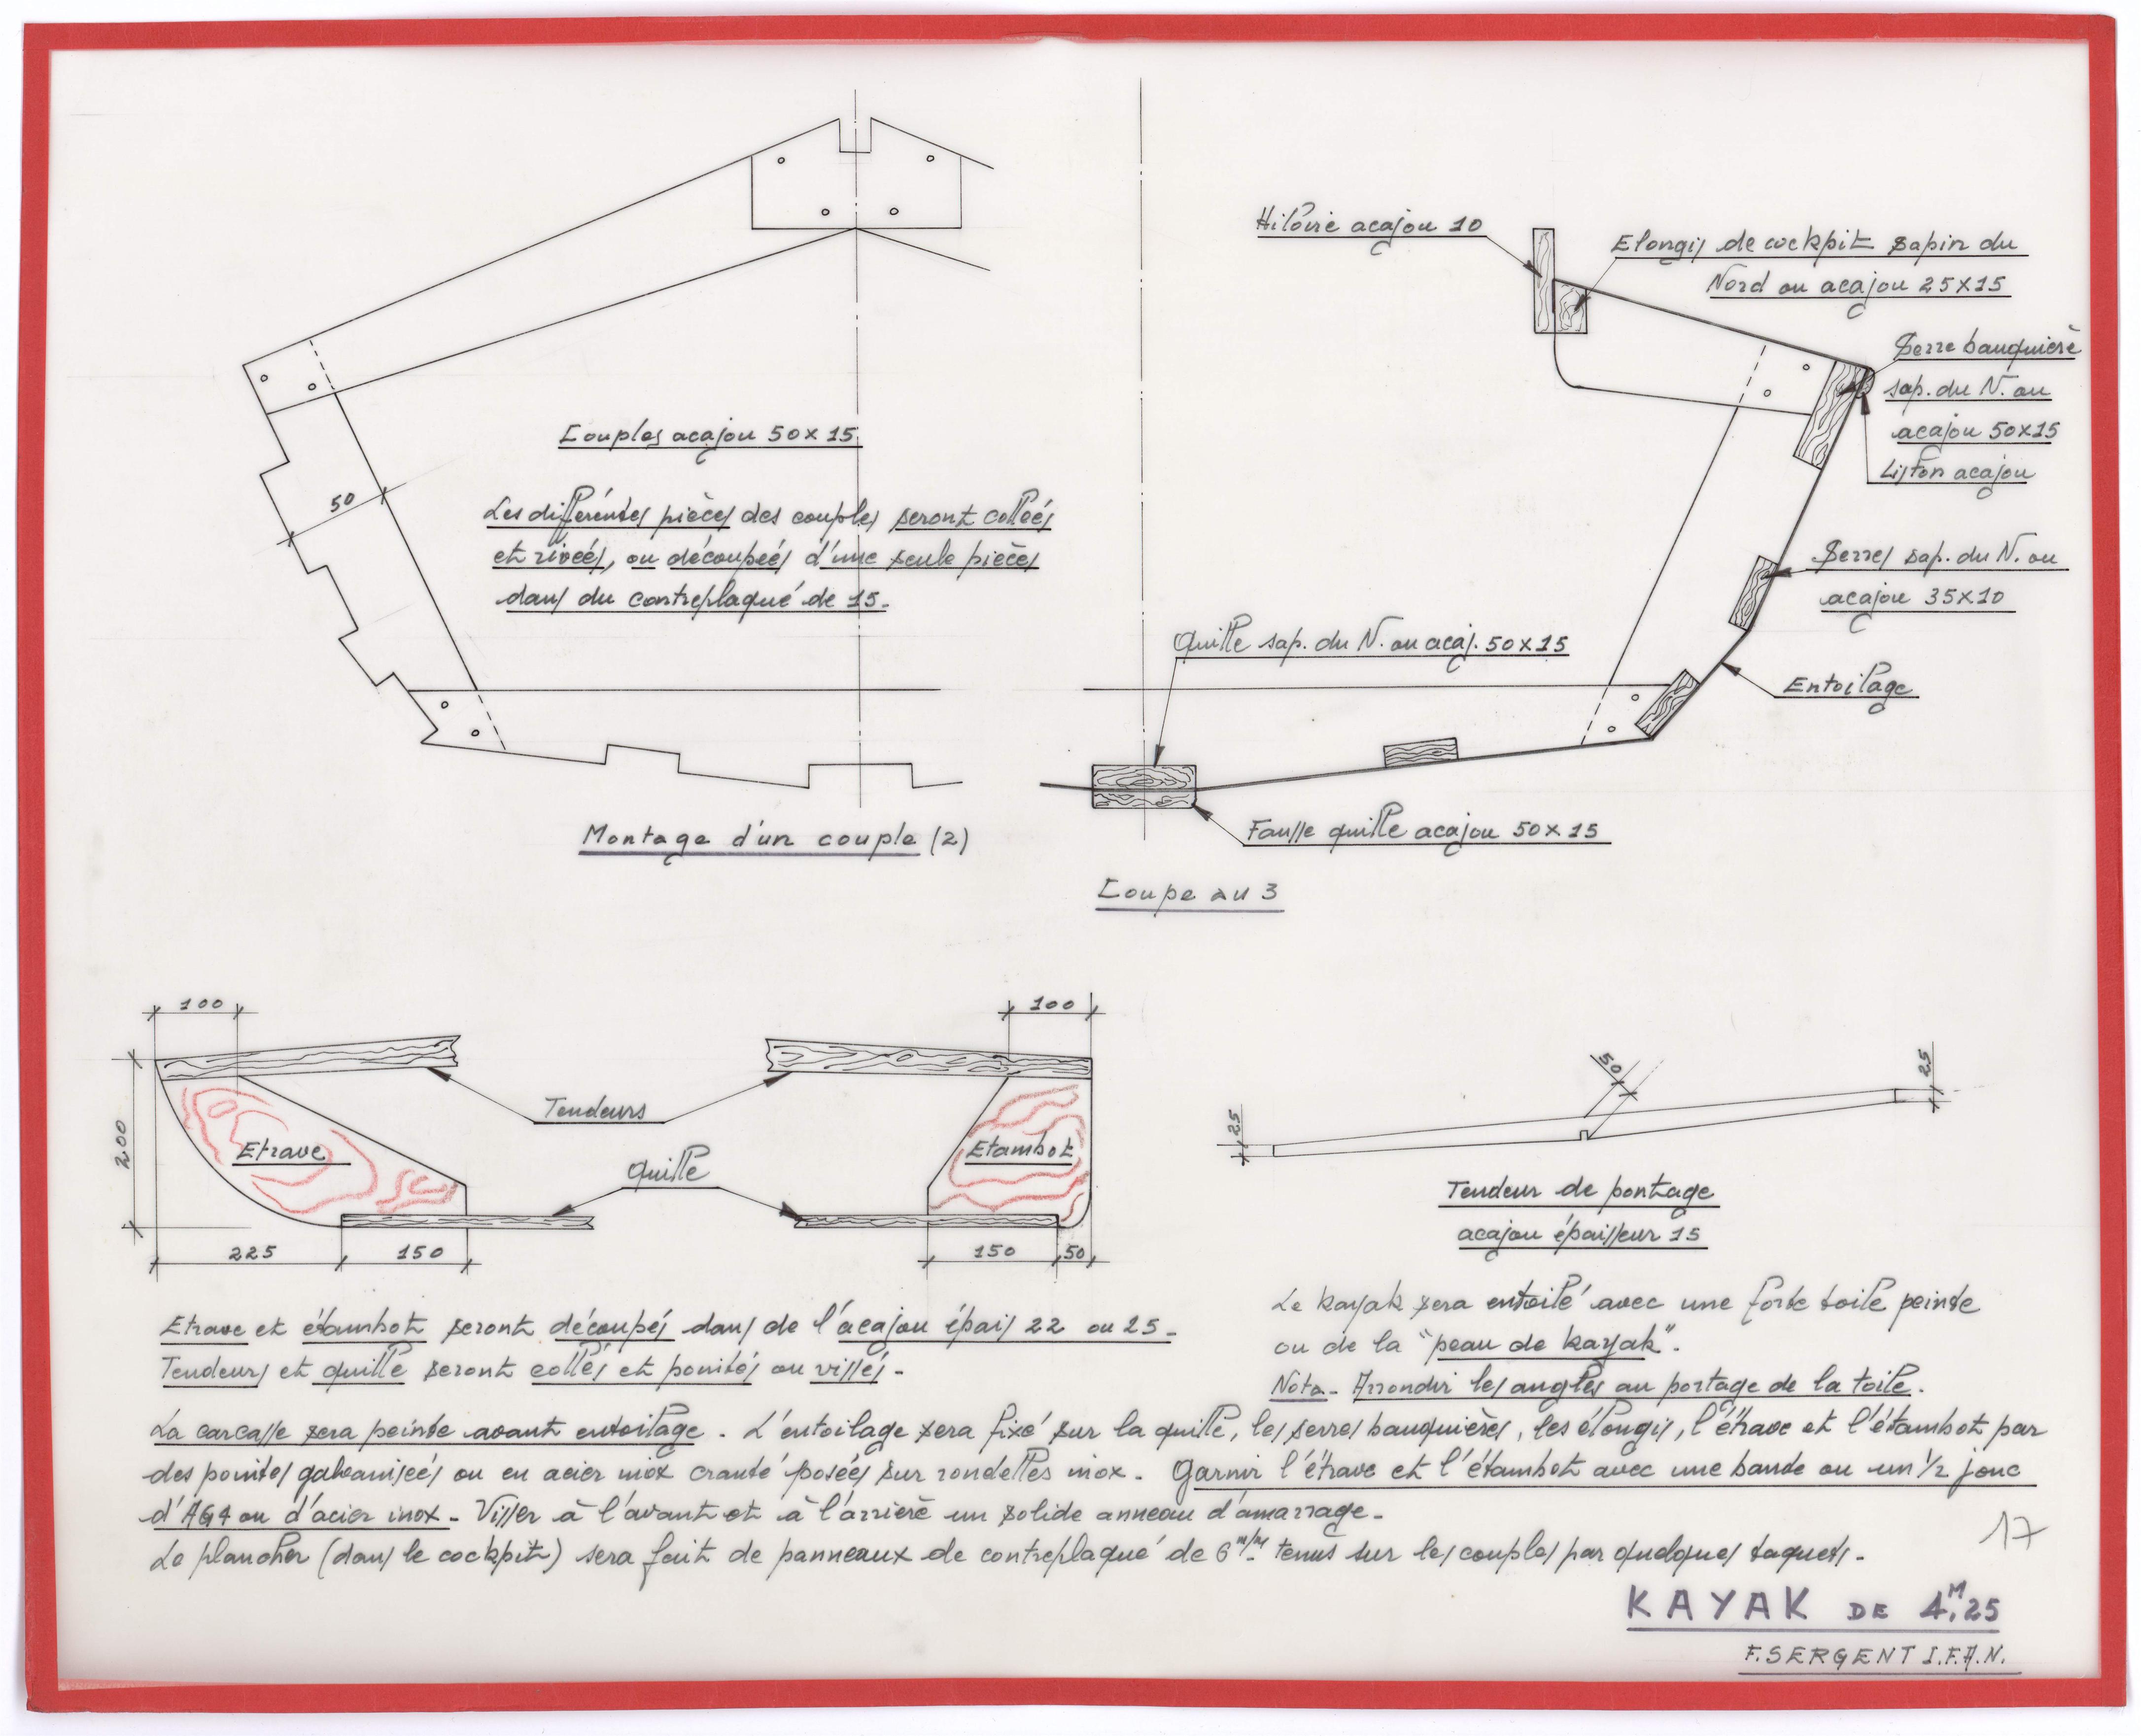 Couples acajou 50x15
50
Les différentes pièces des couples seront collées
et rivées, ou découpées d'une seule pièces
dans du contreplaqué de 15.
Montage d'un couple (2)
Hiloire acajou 10
Elongis de cockpit sapin du
Nord ou acajou 25x15
Serre bauquière
sap. du N. ou
acajou 50x15
Liston acajou
Serres sap. du N. ou
acajou 35x10
Quille sap. du N. ou acaj. 50x15
Entoilage
Fausse quille acajou 50x15
Coupe au 3
100
200
Etrave
225
150
Tendeurs
Quille
100
Etambot
150
50
25
50
25
Tendeur de pontage
acajou épaisseur 15
Etrave et étambot seront découpés dans de l'acajou épais 22 ou 25-
Tendeurs et quille seront collés et pointés ou vissés-
Le kayak sera entoilé avec une forte toile peinte
ou de la "peau de kayak".
Nota- Arrondir les angles au portage de la toile.
La carcasse sera peinte avant entoilage. L'entoilage sera fixé sur la quille, les serres bauquières, les élongis, l'étrave et l'étambot par
des pointes galvanisées ou en acier inox cranté posées sur rondelles inox- Garnir l'étrave et l'étambot avec une bande ou un 1/2 jonc
d'AG4 ou d'acier inox- Visser à l'avant et à l'arrière un solide anneau d'amarrage-
Le plancher (dans le cockpit) sera fait de panneaux de contreplaqué de 6 m/m tenus sur les couples par quelques taquets-
17
KAYAK DE 4M,25
F. SERGENT I.F.A.N.